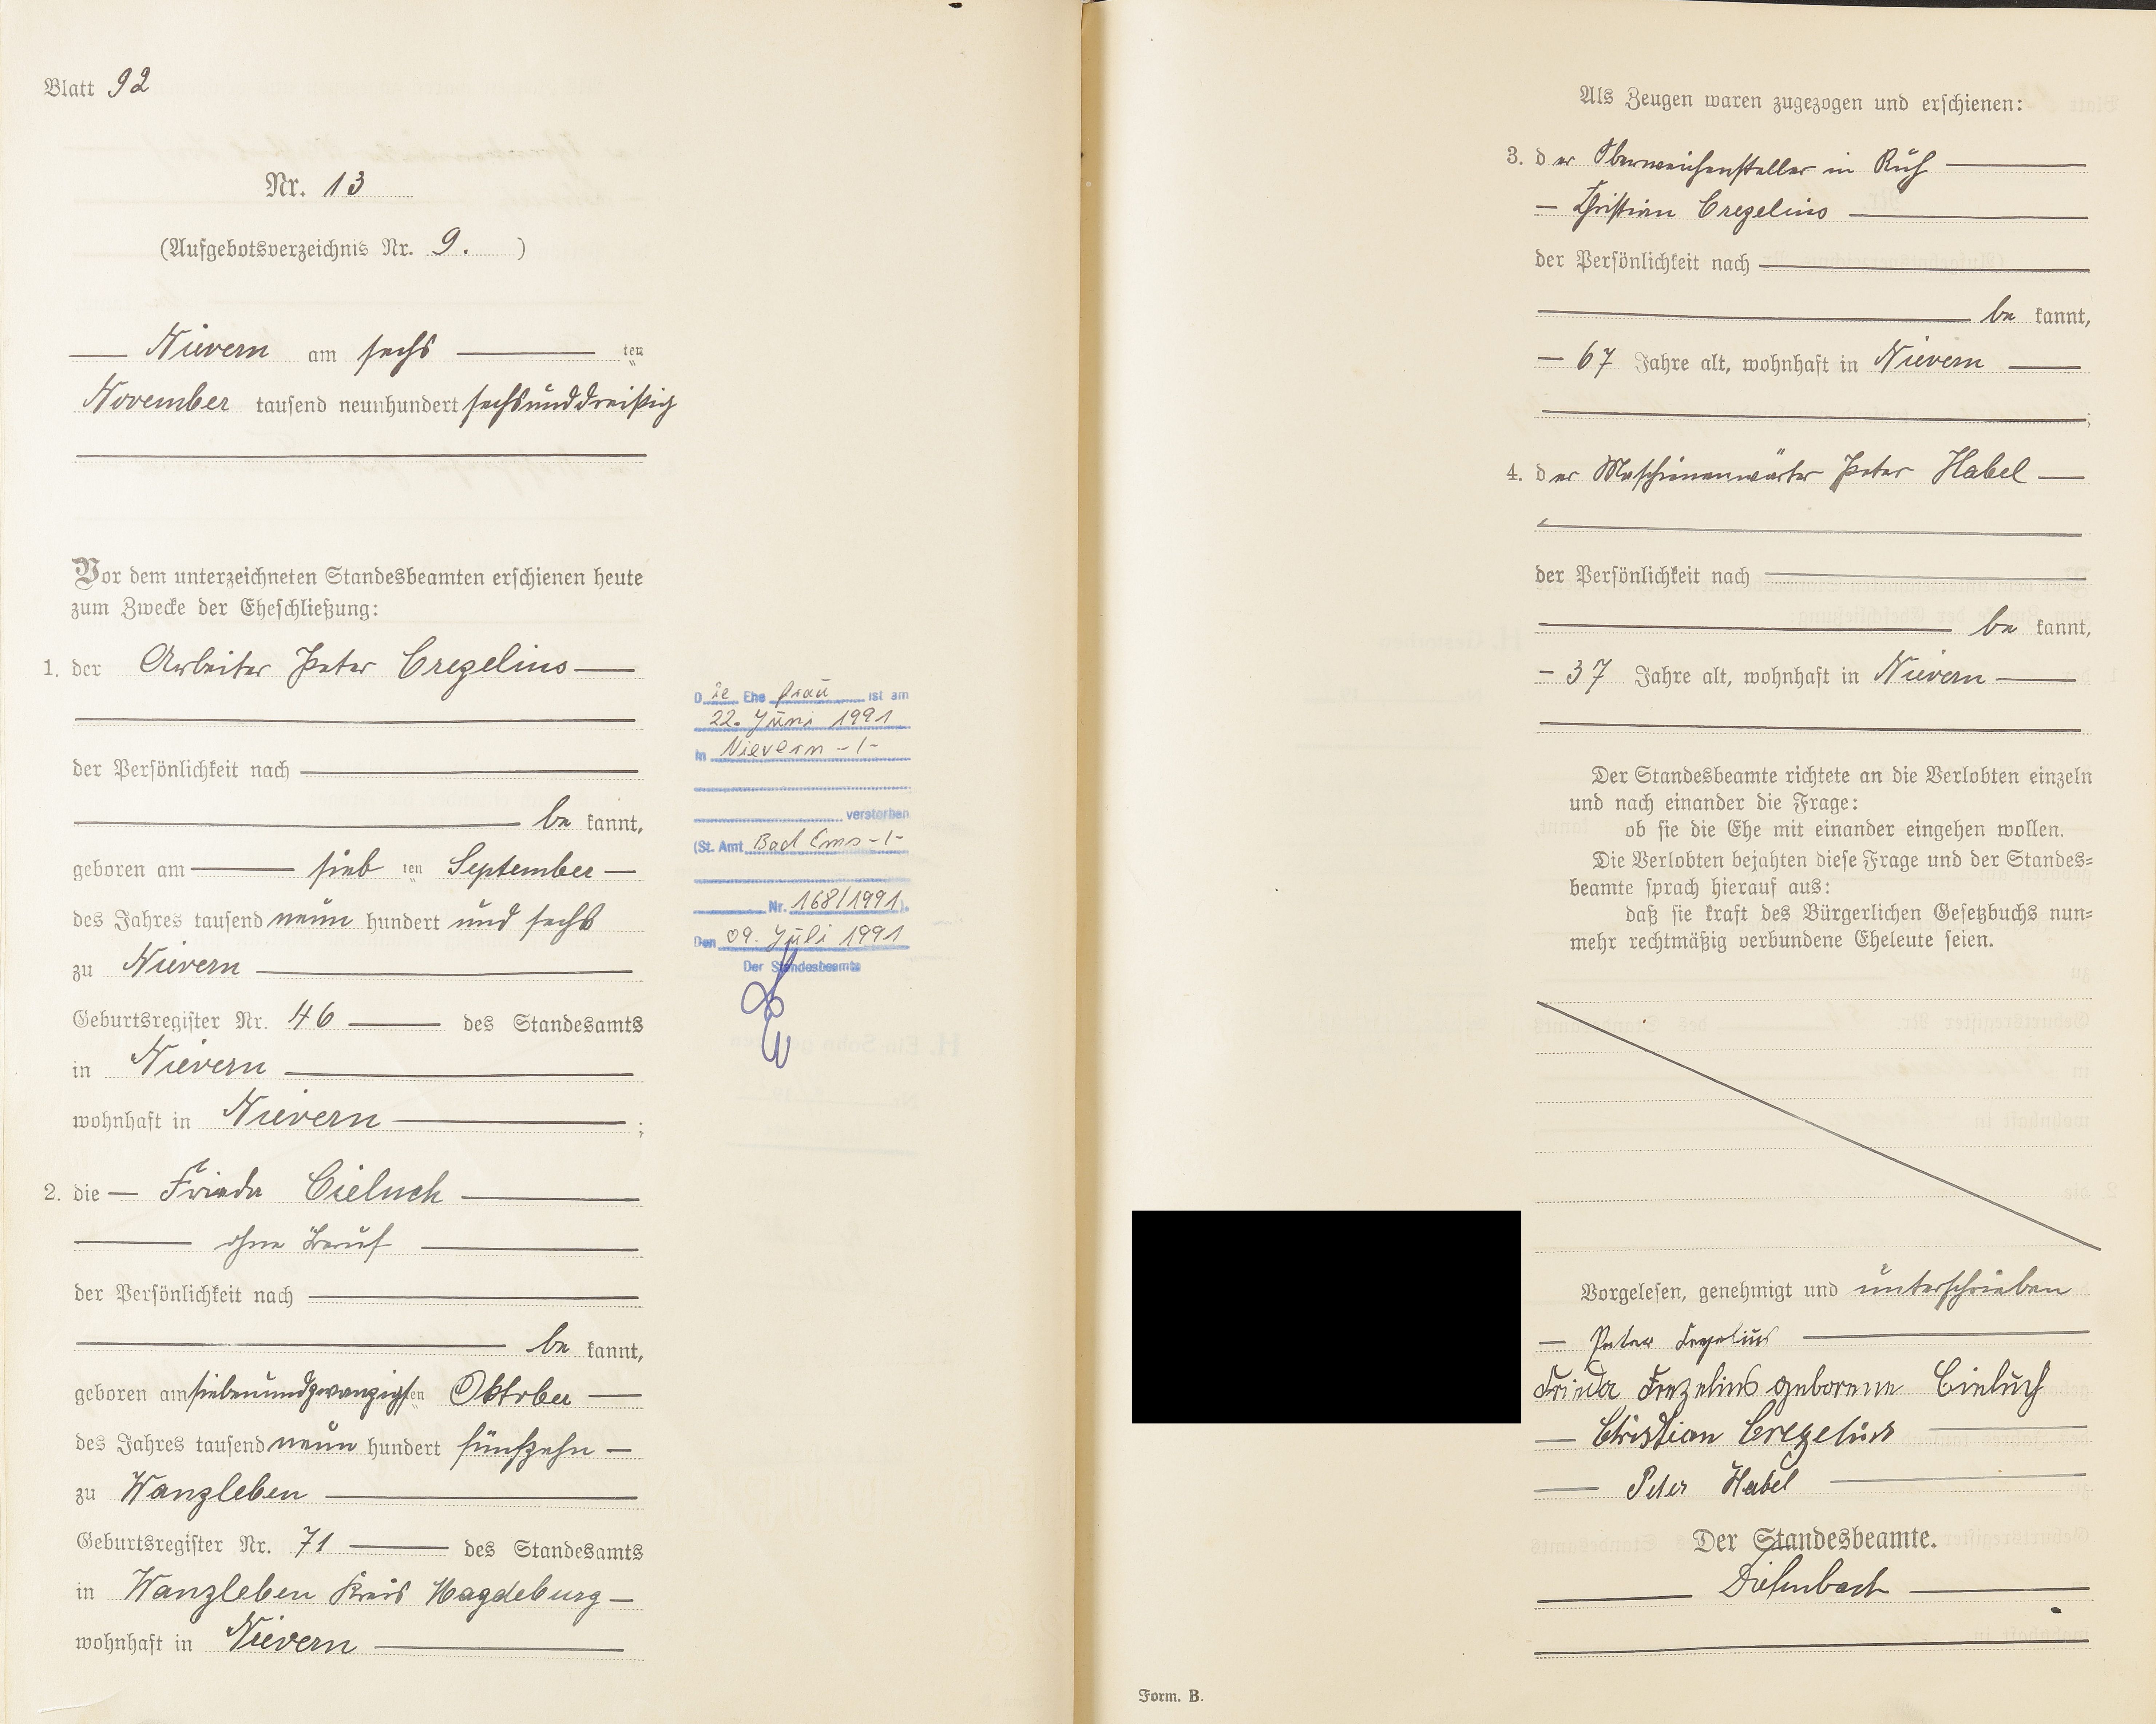 Blatt 92
Nr. 13
(Aufgebotsverzeichnis Nr. 9. )
Nievern am sechs ten
November tausend neunhundert sechsunddreißig
Vor dem unterzeichneten Standesbeamten erschienen heute
zum Zwecke der Eheschließung:
1. der Arbeiter Peter Crezelius
der Persönlichkeit nach
be kannt,
geboren am sieb ten September
des Jahres tausend neun hundert und sechs
zu Nievern
Geburtsregister Nr. 46 des Standesamts
in Nievern
wohnhaft in Nievern ;
2. die Frieda Cieluch
ohne Beruf
der Persönlichkeit nach
be kannt,
geboren am siebenundzwanzigsten Oktober
des Jahres tausend neun hundert fünfzehn
zu Wanzleben
Geburtsregister Nr. 71 des Standesamts
in Wanzleben Kreis Magdeburg
wohnhaft in Nievern
Die Ehefrau ist am
22. Juni 1991
in Nievern -/-
verstorben
(St. Amt Bad Ems -/-
Nr. 168/1991).
Den 09. Juli 1991
Der Standesbeamte
Als Zeugen waren zugezogen und erschienen:
3. der Oberweichensteller in Ruh
Christian Crezelius
der Persönlichkeit nach
be kannt,
67 Jahre alt, wohnhaft in Nievern
;
4. der Maschinenwärter Peter Habel
der Persönlichkeit nach
be kannt,
37 Jahre alt, wohnhaft in Nievern
Der Standesbeamte richtete an die Verlobten einzeln
und nach einander die Frage:
ob sie die Ehe mit einander eingehen wollen.
Die Verlobten bejahten diese Frage und der Standes=
beamte sprach hierauf aus:
daß sie kraft des Bürgerlichen Gesetzbuchs nun=
mehr rechtmäßig verbundene Eheleute seien.
Vorgelesen, genehmigt und unterschrieben
Peter Crezelius
Frieda Crezelius geborene Cieluch
Christian Crezelius
Peter Habel
Der Standesbeamte.
Diefenbach
Form. B.